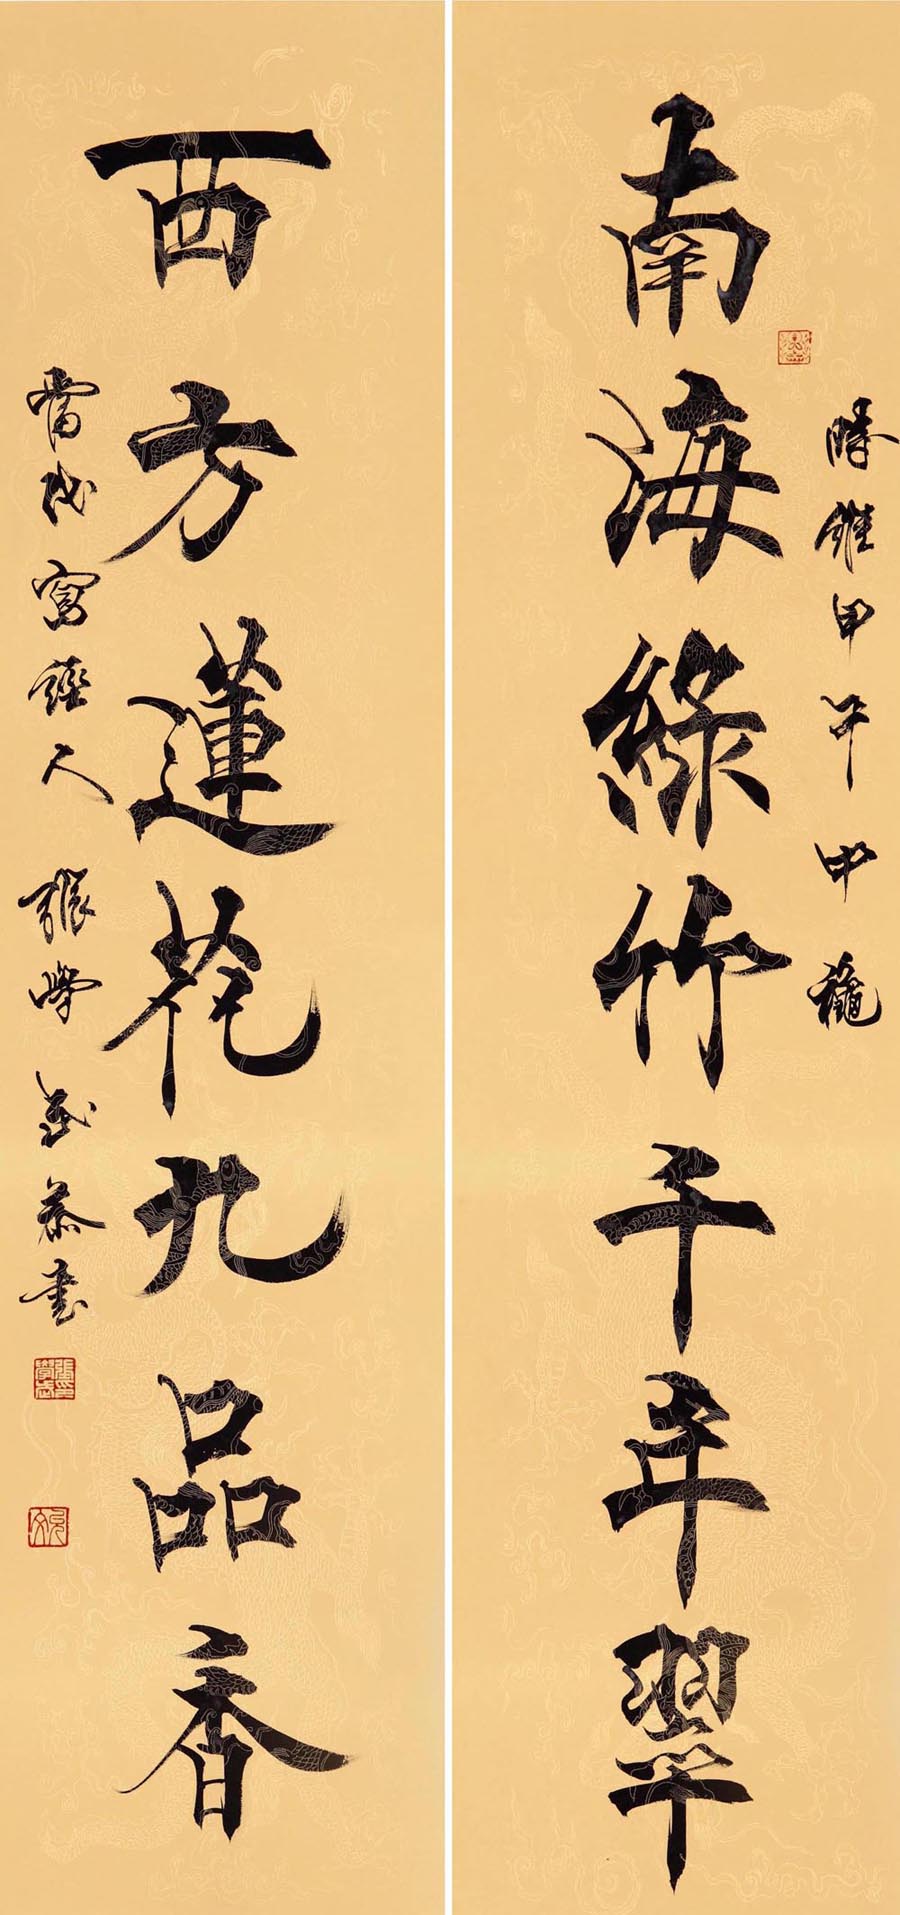 南海綠竹千年翠
時維甲午中龝
西方蓮花九品香
當代寫經人張學武恭書